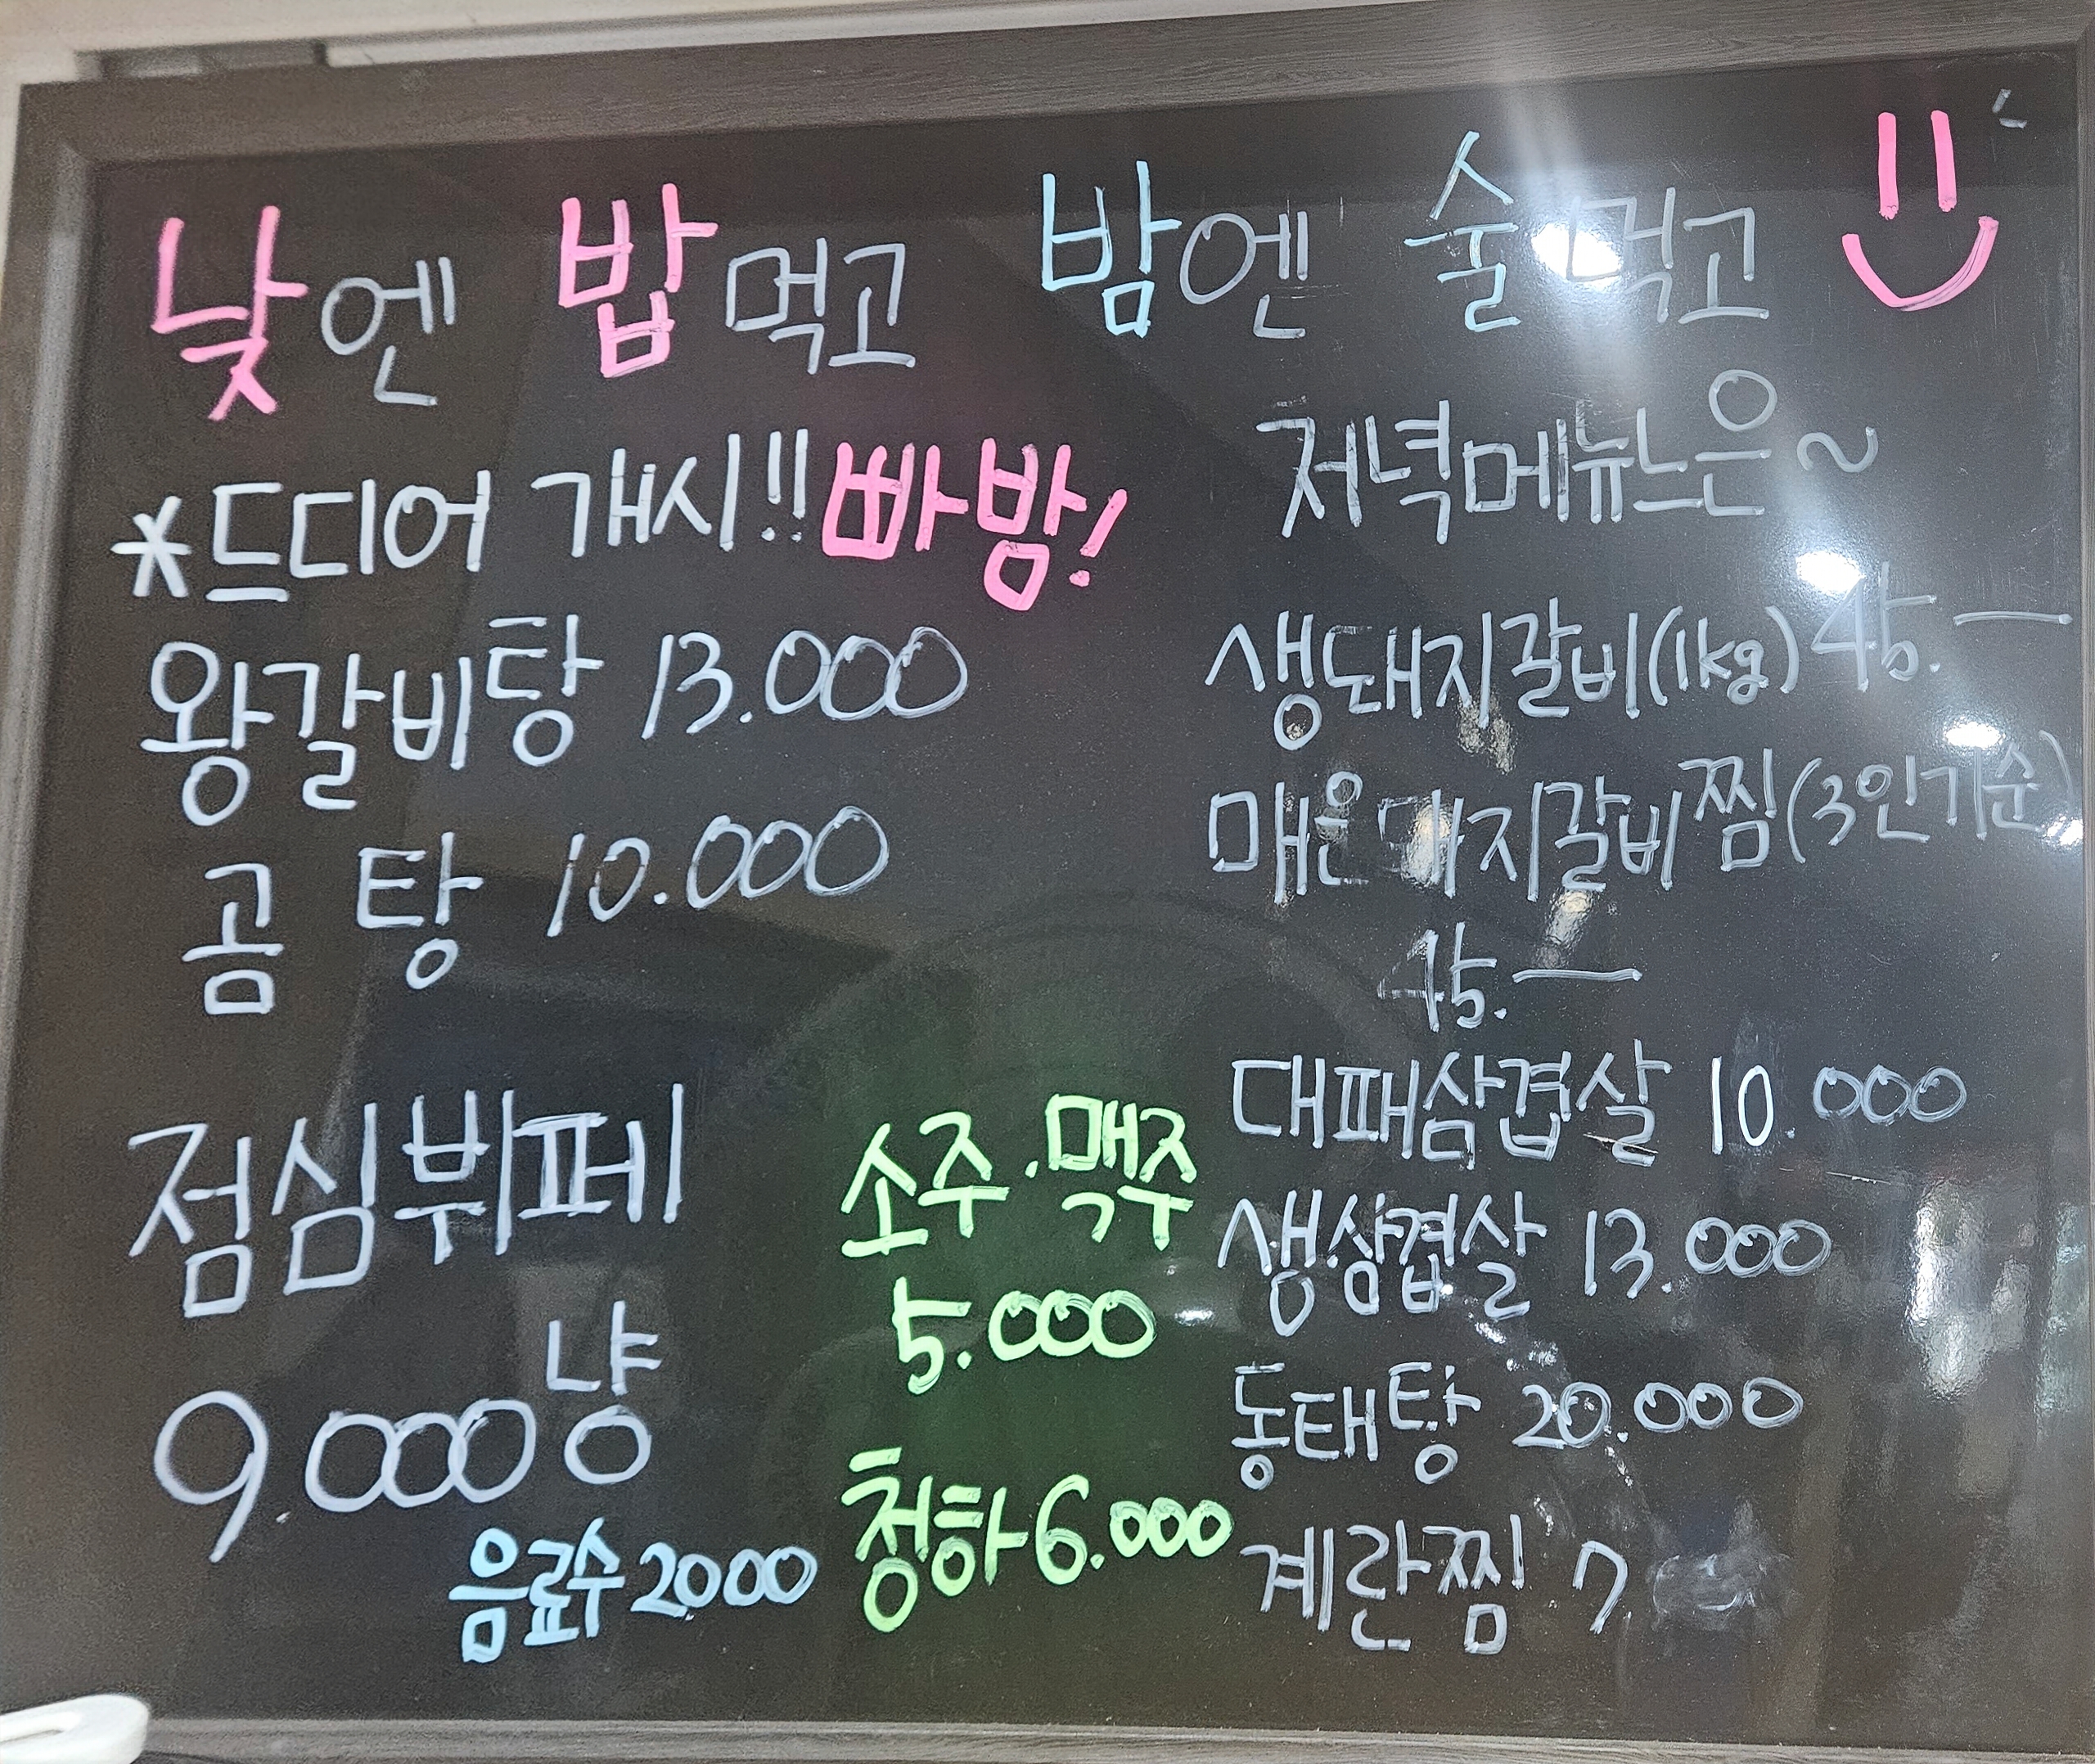 낮엔 밥먹고 밤엔 술먹고
*드디어 개시!! 빠밤!
왕갈비탕 13.000
곰탕 10.000
점심뷔페
9.000냥
음료수 2000
소주.맥주
5.000
청하 6.000
저녁메뉴는~
생돼지갈비(1kg) 45.—
매운돼지갈비찜(3인기준)
45.—
대패삼겹살 10.000
생삼겹살 13.000
동태탕 20.000
계란찜 7